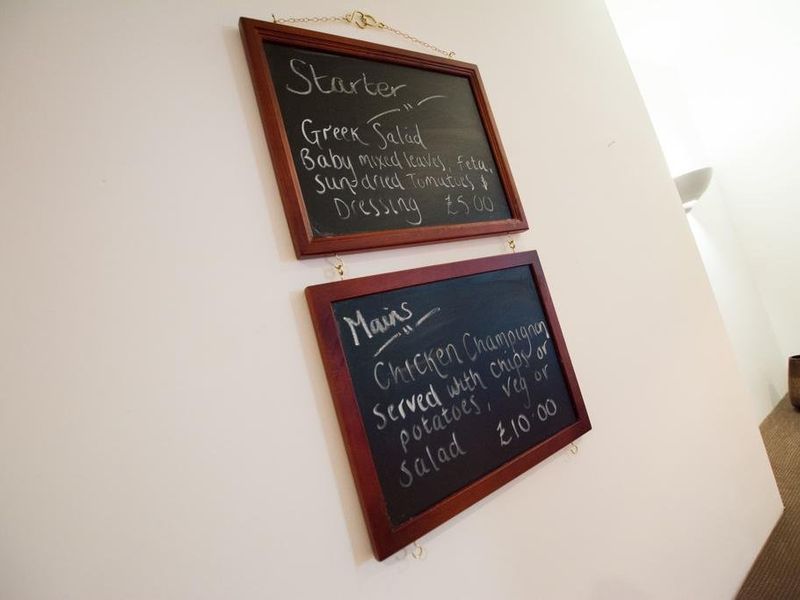 Starter
Greek Salad
Baby mixed leaves, feta,
sun-dried Tomatoes &
Dressing £5.00
Mains
Chicken Champignon
Served with chips or
potatoes, veg or
salad £10.00